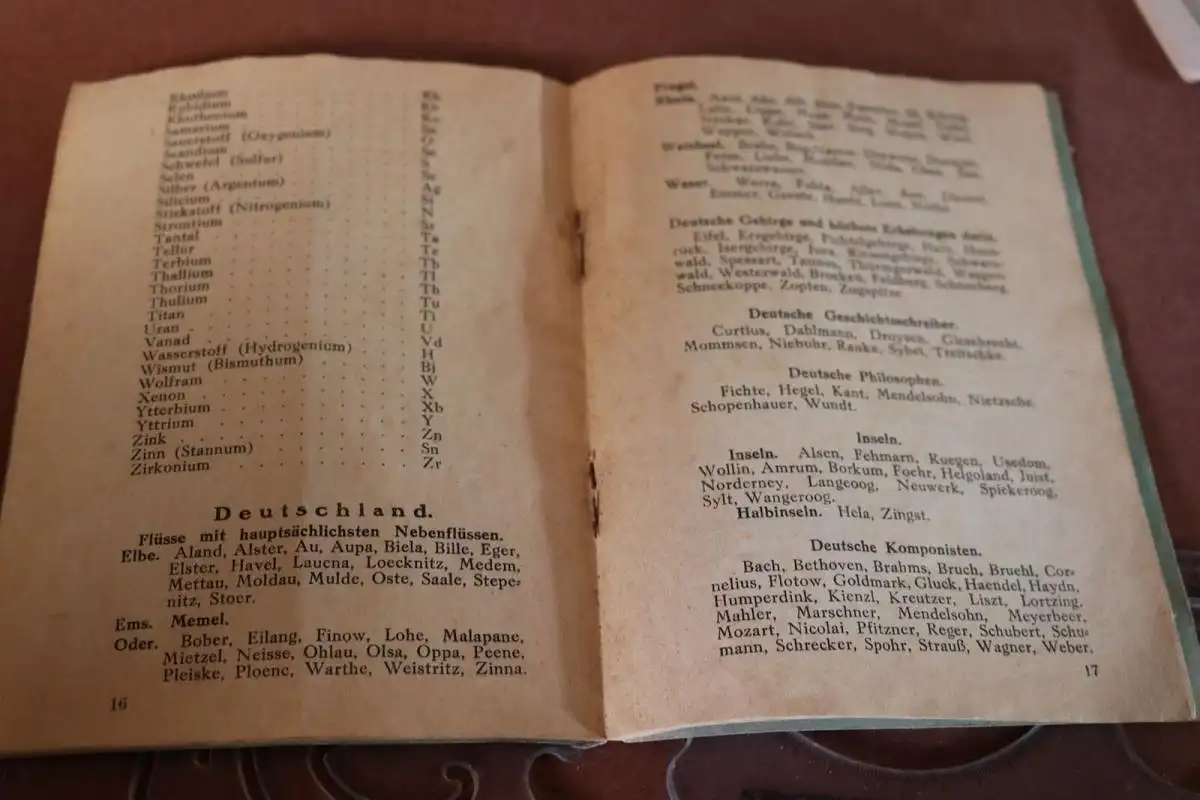 Rhodium Rh
Rubidium Rb
Rhuthenium Ru
Samarium Sa
Sauerstoff (Oxygenium) O
Scandium Sc
Schwefel (Sulfur) S
Selen Se
Silber (Argentum) Ag
Silicium Si
Stickstoff (Nitrogenium) N
Strontium Sr
Tantal Ta
Tellur Te
Terbium Tb
Thallium Tl
Thorium Th
Thulium Tu
Titan Ti
Uran U
Vanad Vd
Wasserstoff (Hydrogenium) H
Wismut (Bismuthum) Bi
Wolfram W
Xenon X
Ytterbium Xb
Yttrium Y
Zink Zn
Zinn (Stannum) Sn
Zirkonium Zr
Deutschland.
Flüsse mit hauptsächlichsten Nebenflüssen.
Elbe. Aland, Alster, Au, Aupa, Biela, Bille, Eger,
Elster, Havel, Laucna, Loecknitz, Medem,
Mettau, Moldau, Mulde, Oste, Saale, Stepe-
nitz, Stoer.
Ems. Memel.
Oder. Bober, Eilang, Finow, Lohe, Malapane,
Mietzel, Neisse, Ohlau, Olsa, Oppa, Peene,
Pleiske, Ploene, Warthe, Weistritz, Zinna.
16
Pregel.
Rhein.
Weichsel. Brahe,
Schwarzwasser.
Weser. Werra, Fulda, Aller,
Deutsche Gebirge und höchste Erhebungen darin.
Eifel, Erzgebirge, Fichtelgebirge, Harz, Huns-
rück, Isergebirge, Jura, Riesengebirge, Schwarz-
wald, Spessart, Taunus, Thüringerwald,
wald, Westerwald, Brocken, Feldberg,
Schneekoppe, Zopten, Zugspitze.
Deutsche Geschichtsschreiber.
Curtius, Dahlmann, Droysen, Giesebrecht,
Mommsen, Niebuhr, Ranke, Sybel, Treitschke.
Deutsche Philosophen.
Fichte, Hegel, Kant, Mendelsohn, Nietzsche,
Schopenhauer, Wundt.
Inseln.
Inseln. Alsen, Fehmarn, Ruegen, Usedom,
Wollin, Amrum, Borkum, Foehr, Helgoland, Juist,
Norderney, Langeoog, Neuwerk, Spiekeroog,
Sylt, Wangeroog.
Halbinseln. Hela, Zingst.
Deutsche Komponisten.
Bach, Bethoven, Brahms, Bruch, Bruehl, Cor-
nelius, Flotow, Goldmark, Gluck, Haendel, Haydn,
Humperdink, Kienzl, Kreutzer, Liszt, Lortzing,
Mahler, Marschner, Mendelsohn, Meyerbeer,
Mozart, Nicolai, Pfitzner, Reger, Schubert, Schu-
mann, Schrecker, Spohr, Strauß, Wagner, Weber,
17